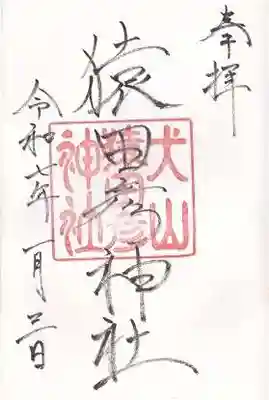 奉拝
猿田彦神社
犬山
猿田彦
神社
令和七年一月三日